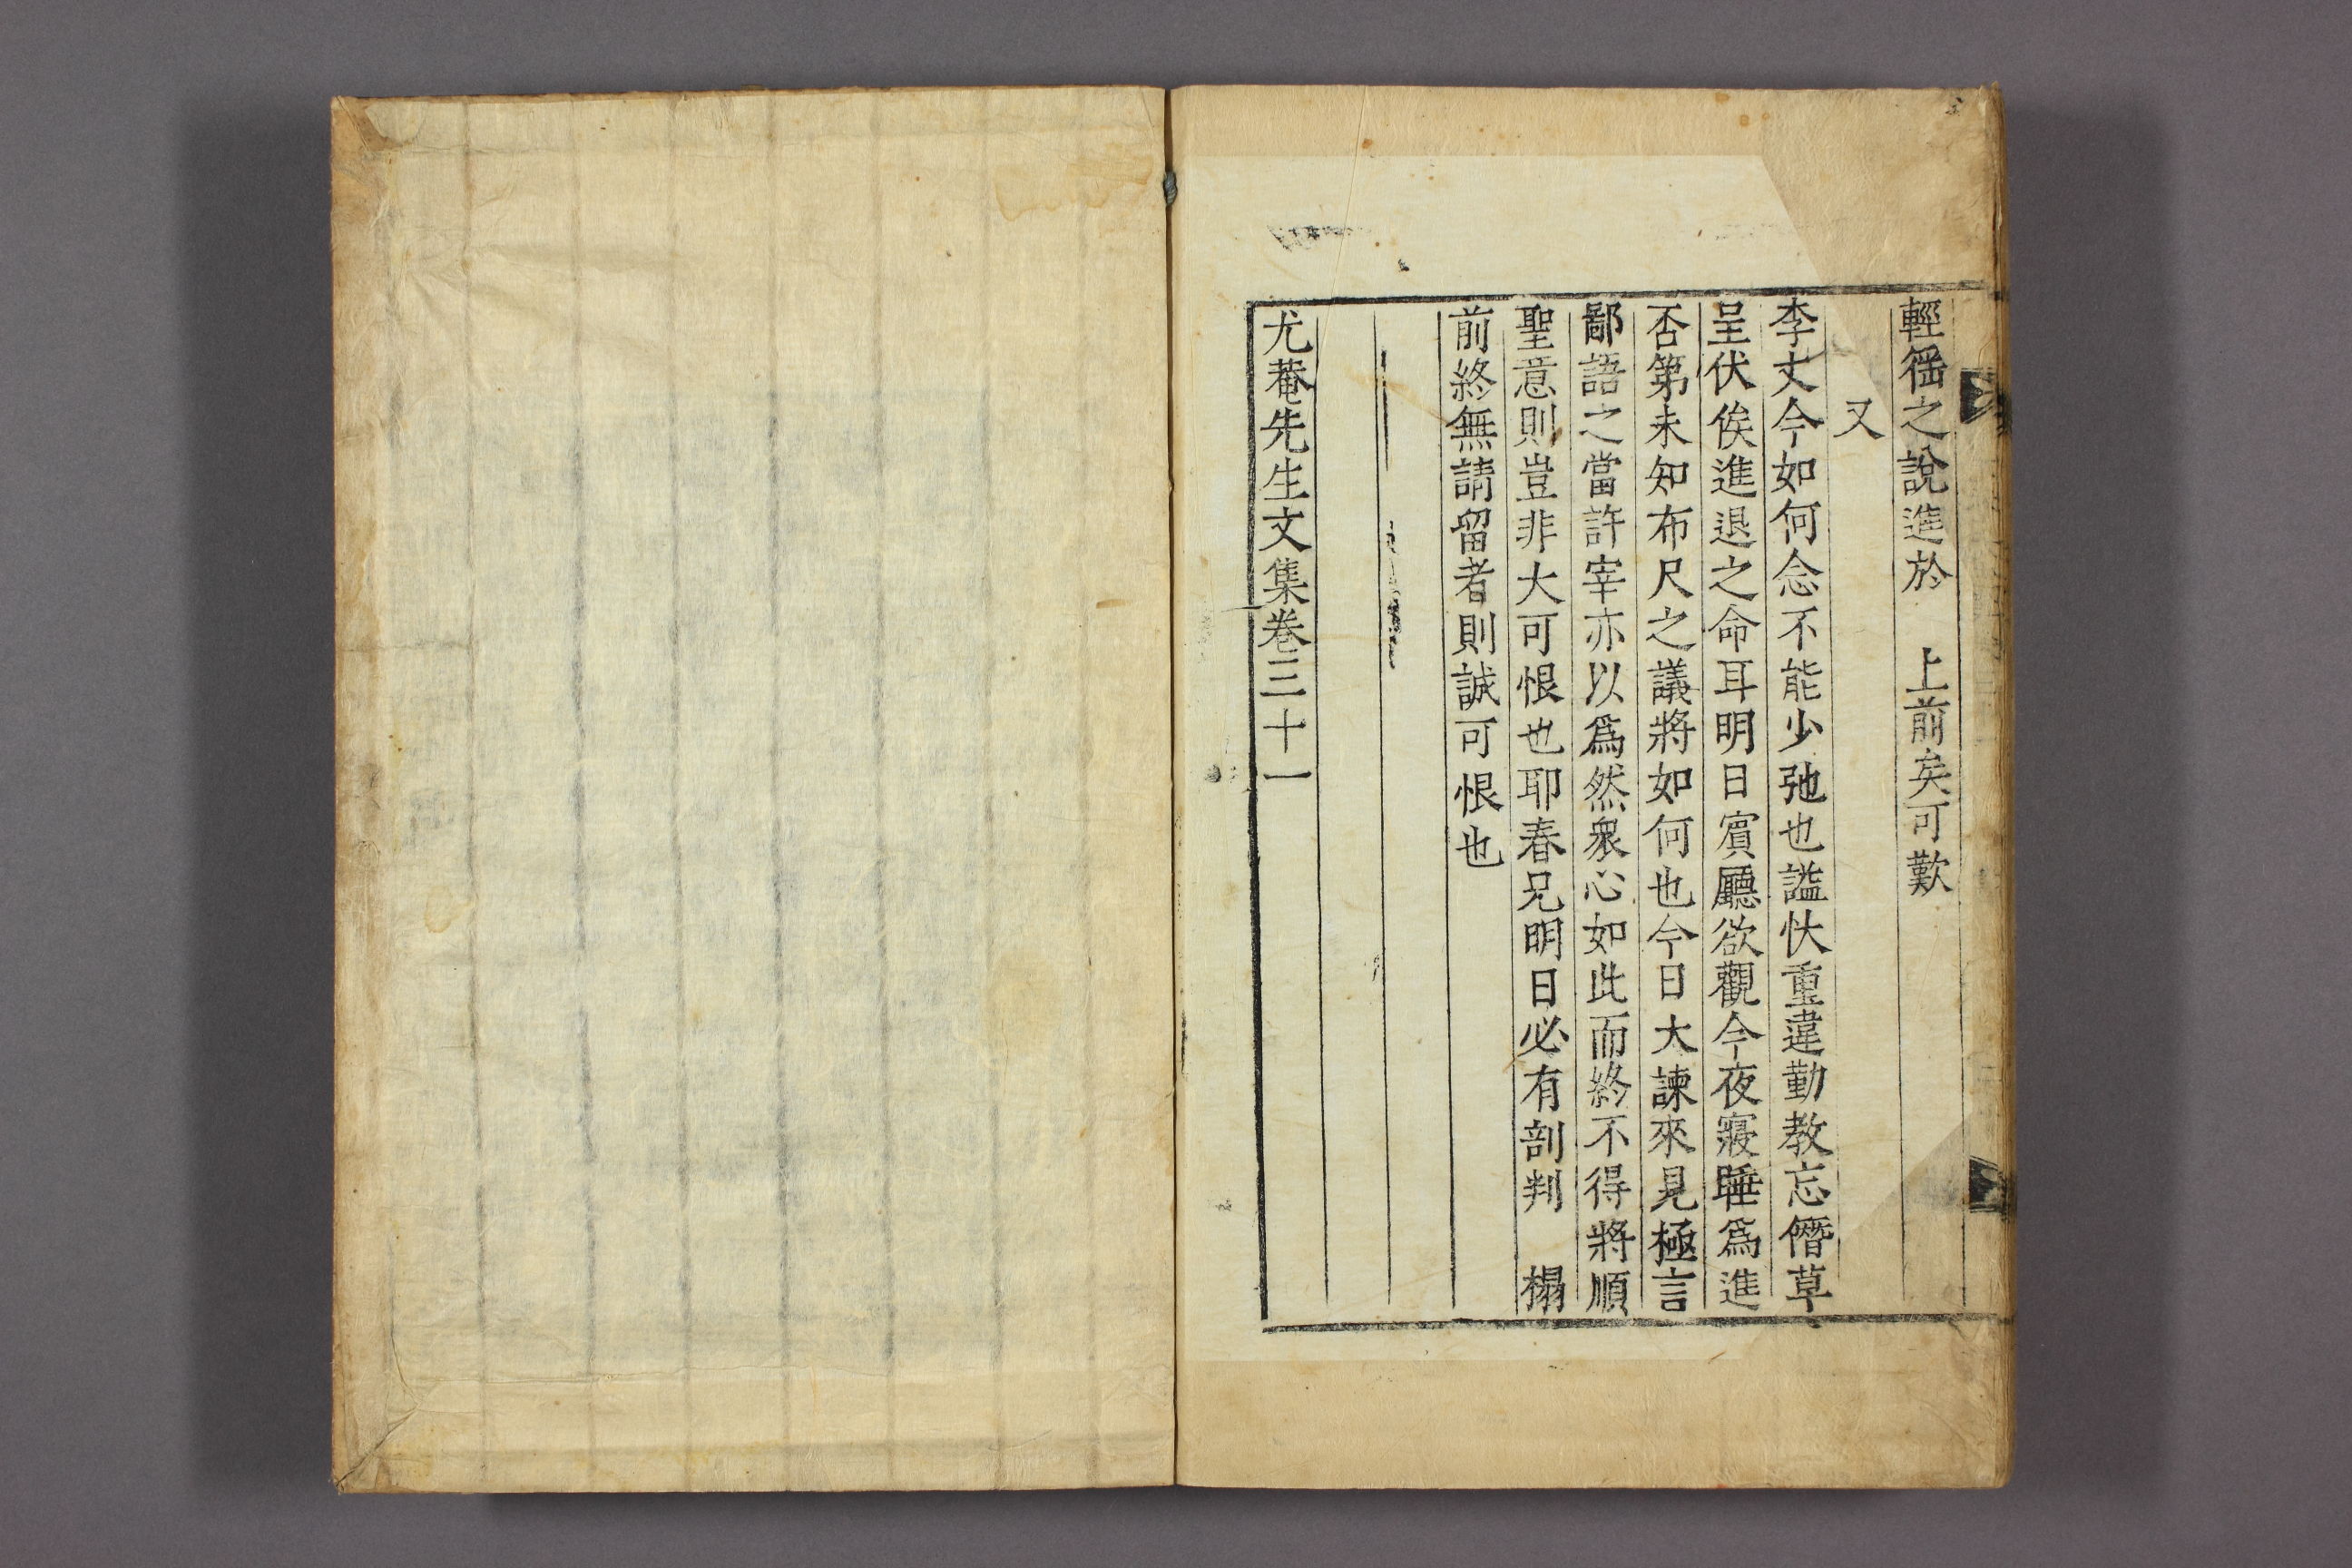 輕徭之說進於　上前矣可歎
又
李丈今如何念不能少弛也謚怢重違勤教忘僭草
呈伏俟進退之命耳明日賓廳欲觀今夜寢睡爲進
否第未知布尺之議將如何也今日大諫來見極言
鄙語之當許宰亦以爲然衆心如此而終不得將順
聖意則豈非大可恨也耶春兄明日必有剖判　榻
前終無請留者則誠可恨也
尤菴先生文集卷三十一